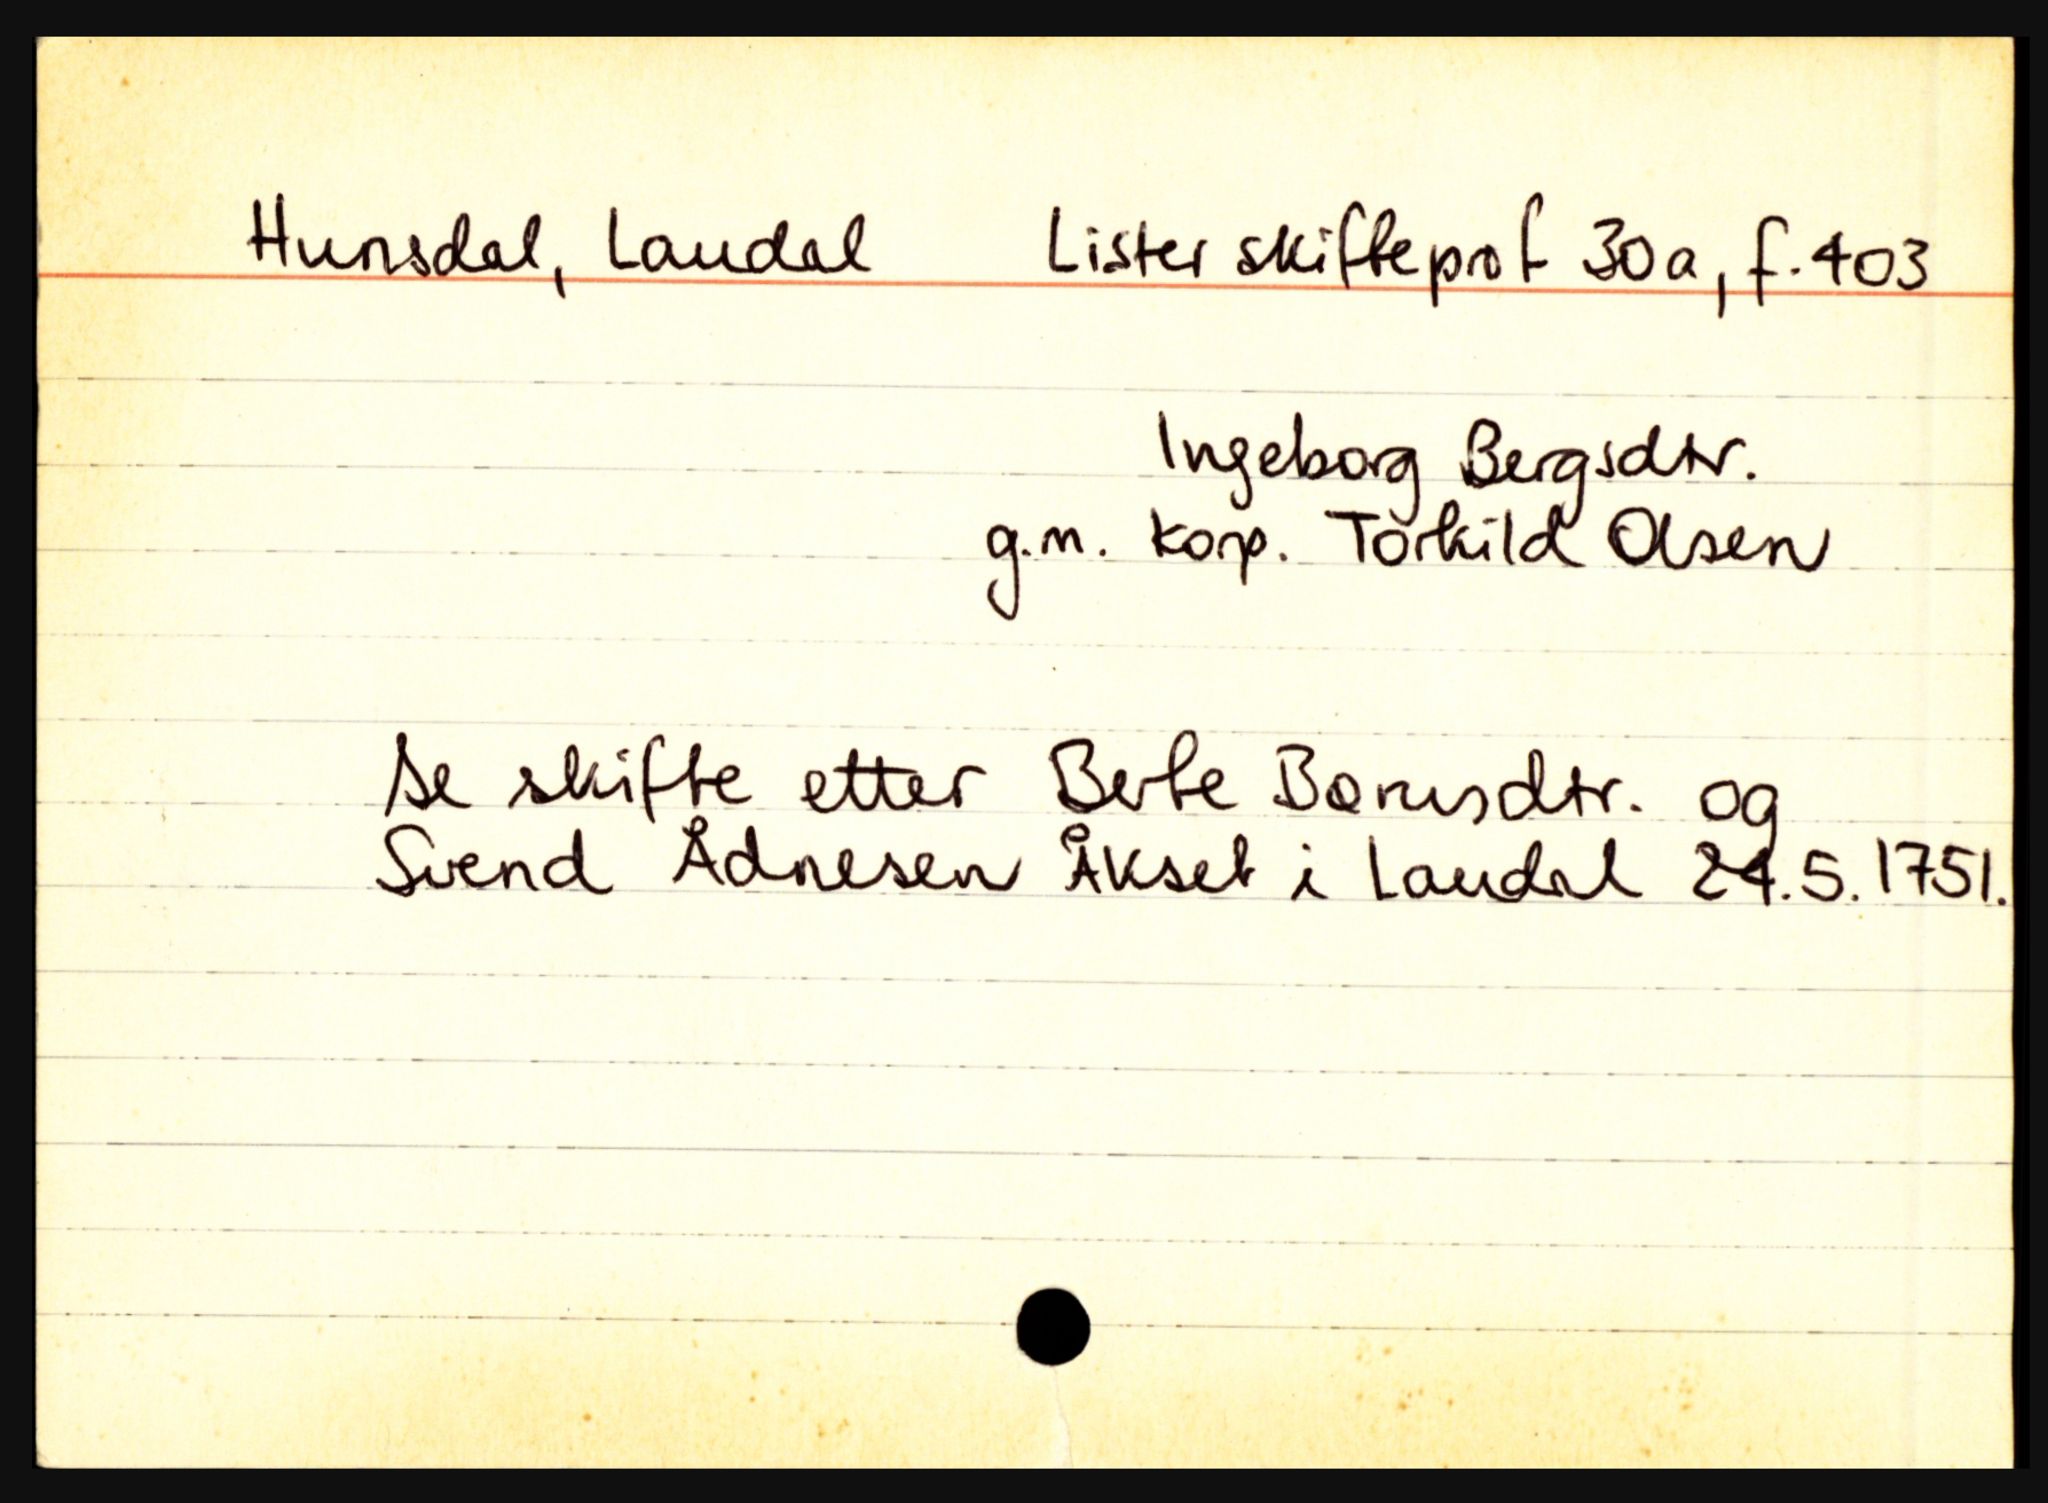 Hunsdal, Laudal Lister skifteprot 30a, f. 403
Ingeborg Bergsdtr.
g.m. korp. Torkild Olsen
Se skifte etter Berte Børuisdtr. og
Svend Ådnesen Åkset i Laudal 24.5.1751.